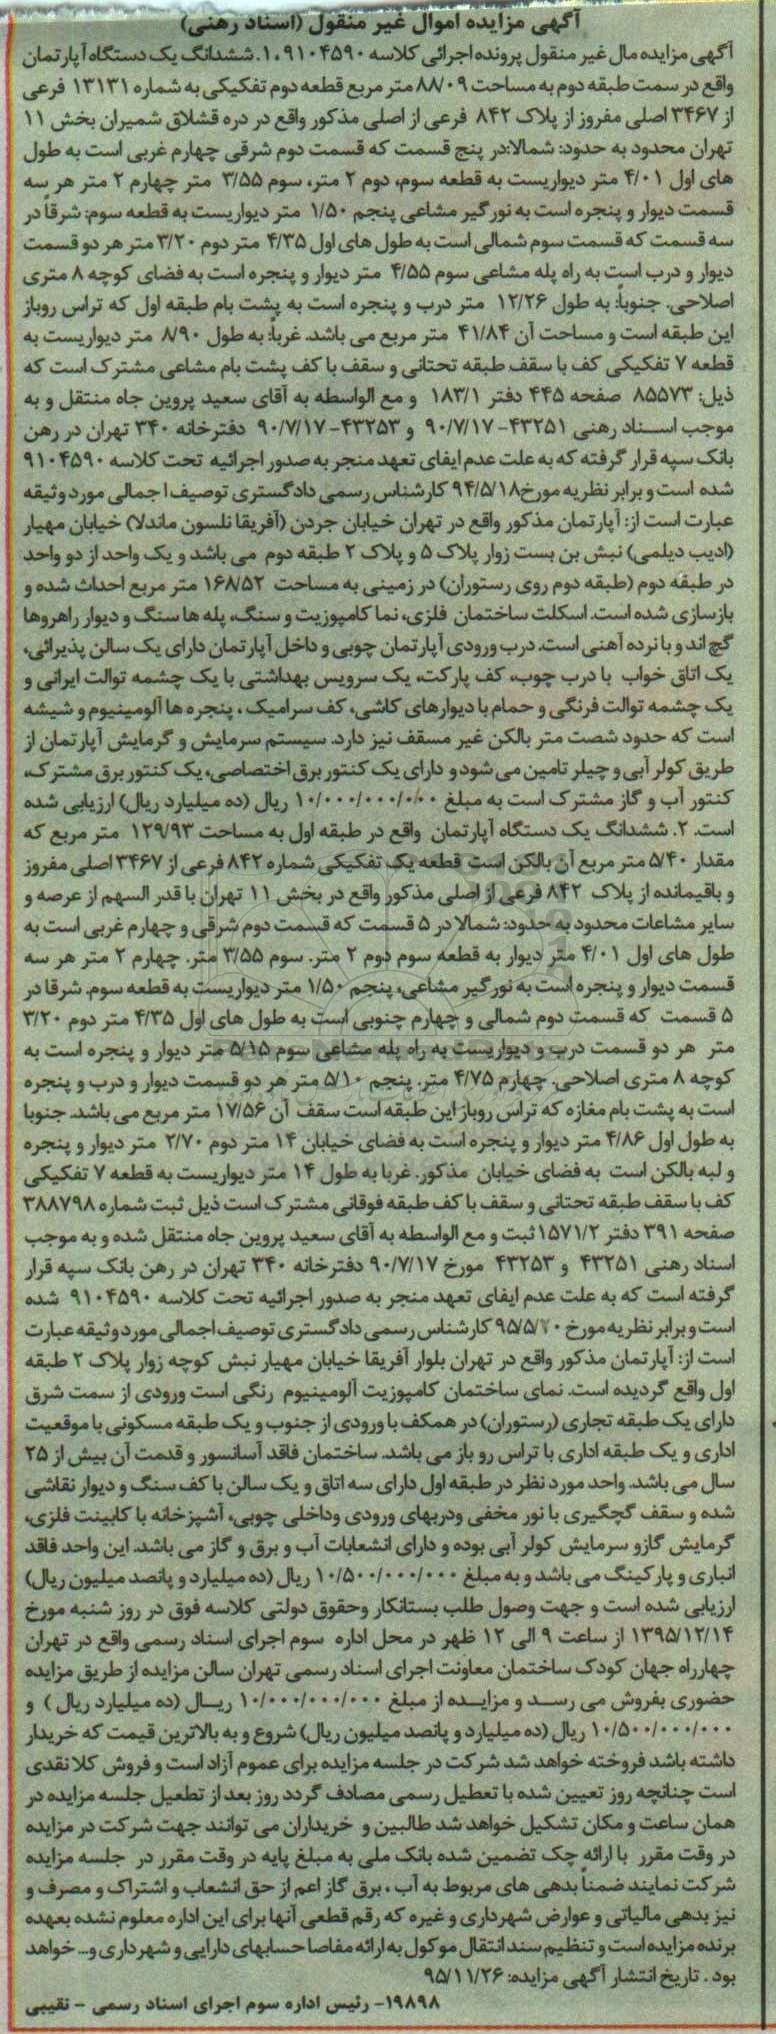 آگهی مزایده اموال غیر منقول (اسناد رهنی)
آگهی مزایده مال غیر منقول پرونده اجرائی کلاسه ۹۱۰۴۵۹۰. ۱. ششدانگ یک دستگاه آپارتمان
واقع در سمت طبقه دوم به مساحت ۸۸/۰۹ متر مربع قطعه دوم تفکیکی به شماره ۱۳۱۳۱ فرعی
از ۳۴۶۷ اصلی مفروز از پلاک ۸۴۲ فرعی از اصلی مذکور واقع در دره قشلاق شمیران بخش ۱۱
تهران محدود به حدود: شمالا: در پنج قسمت که قسمت دوم شرقی چهارم غربی است به طول
های اول ۴/۰۱ متر دیواریست به قطعه سوم، دوم ۲ متر، سوم ۳/۵۵ متر چهارم ۲ متر هر سه
قسمت دیوار و پنجره است به نورگیر مشاعی پنجم ۱/۵۰ متر دیواریست به قطعه سوم: شرقاً در
سه قسمت که قسمت سوم شمالی است به طول های اول ۴/۳۵ متر دوم ۳/۲۰ متر هر دو قسمت
دیوار و درب است به راه پله مشاعی سوم ۴/۵۵ متر دیوار و پنجره است به فضای کوچه ۸ متری
اصلاحی. جنوباً: به طول ۱۲/۲۶ متر درب و پنجره است به پشت بام طبقه اول که تراس روباز
این طبقه است و مساحت آن ۴۱/۸۴ متر مربع می باشد. غرباً: به طول ۸/۹۰ متر دیواریست به
قطعه ۷ تفکیکی کف با سقف طبقه تحتانی و سقف با کف پشت بام مشاعی مشترک است که
ذیل: ۸۵۵۷۳ صفحه ۴۴۵ دفتر ۱۸۳/۱ و مع الواسطه به آقای سعید پروین جاه منتقل و به
موجب اسناد رهنی ۴۳۲۵۱- ۹۰/۷/۱۷ و ۴۳۲۵۳- ۹۰/۷/۱۷ دفترخانه ۳۴۰ تهران در رهن
بانک سپه قرار گرفته که به علت عدم ایفای تعهد منجر به صدور اجرائیه تحت کلاسه ۹۱۰۴۵۹۰
شده است و برابر نظریه مورخ ۹۴/۵/۱۸ کارشناس رسمی دادگستری توصیف اجمالی مورد وثیقه
عبارت است از: آپارتمان مذکور واقع در تهران خیابان جردن (آفریقا نلسون ماندلا) خیابان مهیار
(ادیب دیلمی) نبش بن بست زوار پلاک ۵ و پلاک ۲ طبقه دوم می باشد و یک واحد از دو واحد
در طبقه دوم (طبقه دوم روی رستوران) در زمینی به مساحت ۱۶۸/۵۲ متر مربع احداث شده و
بازسازی شده است. اسکلت ساختمان فلزی، نما کامپوزیت و سنگ، پله ها سنگ و دیوار راهروها
گچ اند و با نرده آهنی است. درب ورودی آپارتمان چوبی و داخل آپارتمان دارای یک سالن پذیرائی،
یک اتاق خواب با درب چوب، کف پارکت، یک سرویس بهداشتی با یک چشمه توالت ایرانی و
یک چشمه توالت فرنگی و حمام با دیوارهای کاشی، کف سرامیک ، پنجره ها آلومینیوم و شیشه
است که حدود شصت متر بالکن غیر مسقف نیز دارد. سیستم سرمایش و گرمایش آپارتمان از
طریق کولر آبی و چیلر تامین می شود و دارای یک کنتور برق اختصاصی، یک کنتور برق مشترک،
کنتور آب و گاز مشترک است به مبلغ ۱۰/۰۰۰/۰۰۰/۰۰۰ ریال (ده میلیارد ریال) ارزیابی شده
است. ۲. ششدانگ یک دستگاه آپارتمان واقع در طبقه اول به مساحت ۱۲۹/۹۳ متر مربع که
مقدار ۵/۴۰ متر مربع آن بالکن است قطعه یک تفکیکی شماره ۸۴۲ فرعی از ۳۴۶۷ اصلی مفروز
و باقیمانده از پلاک ۸۴۲ فرعی از اصلی مذکور واقع در بخش ۱۱ تهران با قدر السهم از عرصه و
سایر مشاعات محدود به حدود: شمالا در ۵ قسمت که قسمت دوم شرقی و چهارم غربی است به
طول های اول ۴/۰۱ متر دیوار به قطعه سوم دوم ۲ متر. سوم ۳/۵۵ متر. چهارم ۲ متر هر سه
قسمت دیوار و پنجره است به نورگیر مشاعی، پنجم ۱/۵۰ متر دیواریست به قطعه سوم. شرقا در
۵ قسمت که قسمت دوم شمالی و چهارم جنوبی است به طول های اول ۴/۳۵ متر دوم ۳/۲۰
متر هر دو قسمت درب و دیواریست به راه پله مشاعی سوم ۵/۱۵ متر دیوار و پنجره است به
کوچه ۸ متری اصلاحی. چهارم ۴/۷۵ متر. پنجم ۵/۱۰ متر هر دو قسمت دیوار و درب و پنجره
است به پشت بام مغازه که تراس روباز این طبقه است سقف آن ۱۷/۵۶ متر مربع می باشد. جنوبا
به طول اول ۴/۸۶ متر دیوار و پنجره است به فضای خیابان ۱۴ متر دوم ۲/۷۰ متر دیوار و پنجره
و لبه بالکن است به فضای خیابان مذکور. غربا به طول ۱۴ متر دیواریست به قطعه ۷ تفکیکی
کف با سقف طبقه تحتانی و سقف با کف طبقه فوقانی مشترک است ذیل ثبت شماره ۳۸۸۷۹۸
صفحه ۳۹۱ دفتر ۱۵۷۱/۲ ثبت و مع الواسطه به آقای سعید پروین جاه منتقل شده و به موجب
اسناد رهنی ۴۳۲۵۱ و ۴۳۲۵۳ مورخ ۹۰/۷/۱۷ دفترخانه ۳۴۰ تهران در رهن بانک سپه قرار
گرفته است که به علت عدم ایفای تعهد منجر به صدور اجرائیه تحت کلاسه ۹۱۰۴۵۹۰ شده
است و برابر نظریه مورخ کارشناس رسمی دادگستری توصیف اجمالی مورد وثیقه عبارت
است از: آپارتمان مذکور واقع در تهران بلوار آفریقا خیابان مهیار نبش کوچه زوار پلاک ۲ طبقه
اول واقع گردیده است. نمای ساختمان کامپوزیت آلومینیوم رنگی است ورودی از سمت شرق
دارای یک طبقه تجاری (رستوران) در همکف با ورودی از جنوب و یک طبقه مسکونی با موقعیت
اداری و یک طبقه اداری با تراس رو باز می باشد. ساختمان فاقد آسانسور و قدمت آن بیش از ۲۵
سال می باشد. واحد مورد نظر در طبقه اول دارای سه اتاق و یک سالن با کف سنگ و دیوار نقاشی
شده و سقف گچگیری با نور مخفی ودربهای ورودی وداخلی چوبی، آشپزخانه با کابینت فلزی،
گرمایش گازو سرمایش کولر آبی بوده و دارای انشعابات آب و برق و گاز می باشد. این واحد فاقد
انباری و پارکینگ می باشد و به مبلغ ۱۰/۵۰۰/۰۰۰/۰۰۰ ریال (ده میلیارد و پانصد میلیون ریال)
ارزیابی شده است و جهت وصول طلب بستانکار وحقوق دولتی کلاسه فوق در روز شنبه مورخ
۱۳۹۵/۱۲/۱۴ از ساعت ۹ الی ۱۲ ظهر در محل اداره سوم اجرای اسناد رسمی واقع در تهران
چهارراه جهان کودک ساختمان معاونت اجرای اسناد رسمی تهران سالن مزایده از طریق مزایده
حضوری بفروش می رسد و مزایده از مبلغ ۱۰/۰۰۰/۰۰۰/۰۰۰ ریال (ده میلیارد ریال ) و
۱۰/۵۰۰/۰۰۰/۰۰۰ ریال (ده میلیارد و پانصد میلیون ریال) شروع و به بالاترین قیمت که خریدار
داشته باشد فروخته خواهد شد شرکت در جلسه مزایده برای عموم آزاد است و فروش کلا نقدی
است چنانچه روز تعیین شده با تعطیل رسمی مصادف گردد روز بعد از تطعیل جلسه مزایده در
همان ساعت و مکان تشکیل خواهد شد طالبین و خریداران می توانند جهت شرکت در مزایده
در وقت مقرر با ارائه چک تضمین شده بانک ملی به مبلغ پایه در وقت مقرر در جلسه مزایده
شرکت نمایند ضمناً بدهی های مربوط به آب ، برق گاز اعم از حق انشعاب و اشتراک و مصرف و
نیز بدهی مالیاتی و عوارض شهرداری و غیره که رقم قطعی آنها برای این اداره معلوم نشده بعهده
برنده مزایده است و تنظیم سند انتقال موکول به ارائه مفاصا حسابهای دارایی و شهرداری و... خواهد
بود . تاریخ انتشار آگهی مزایده: ۹۵/۱۱/۲۶
۱۹۸۹۸- رئیس اداره سوم اجرای اسناد رسمی - نقیبی